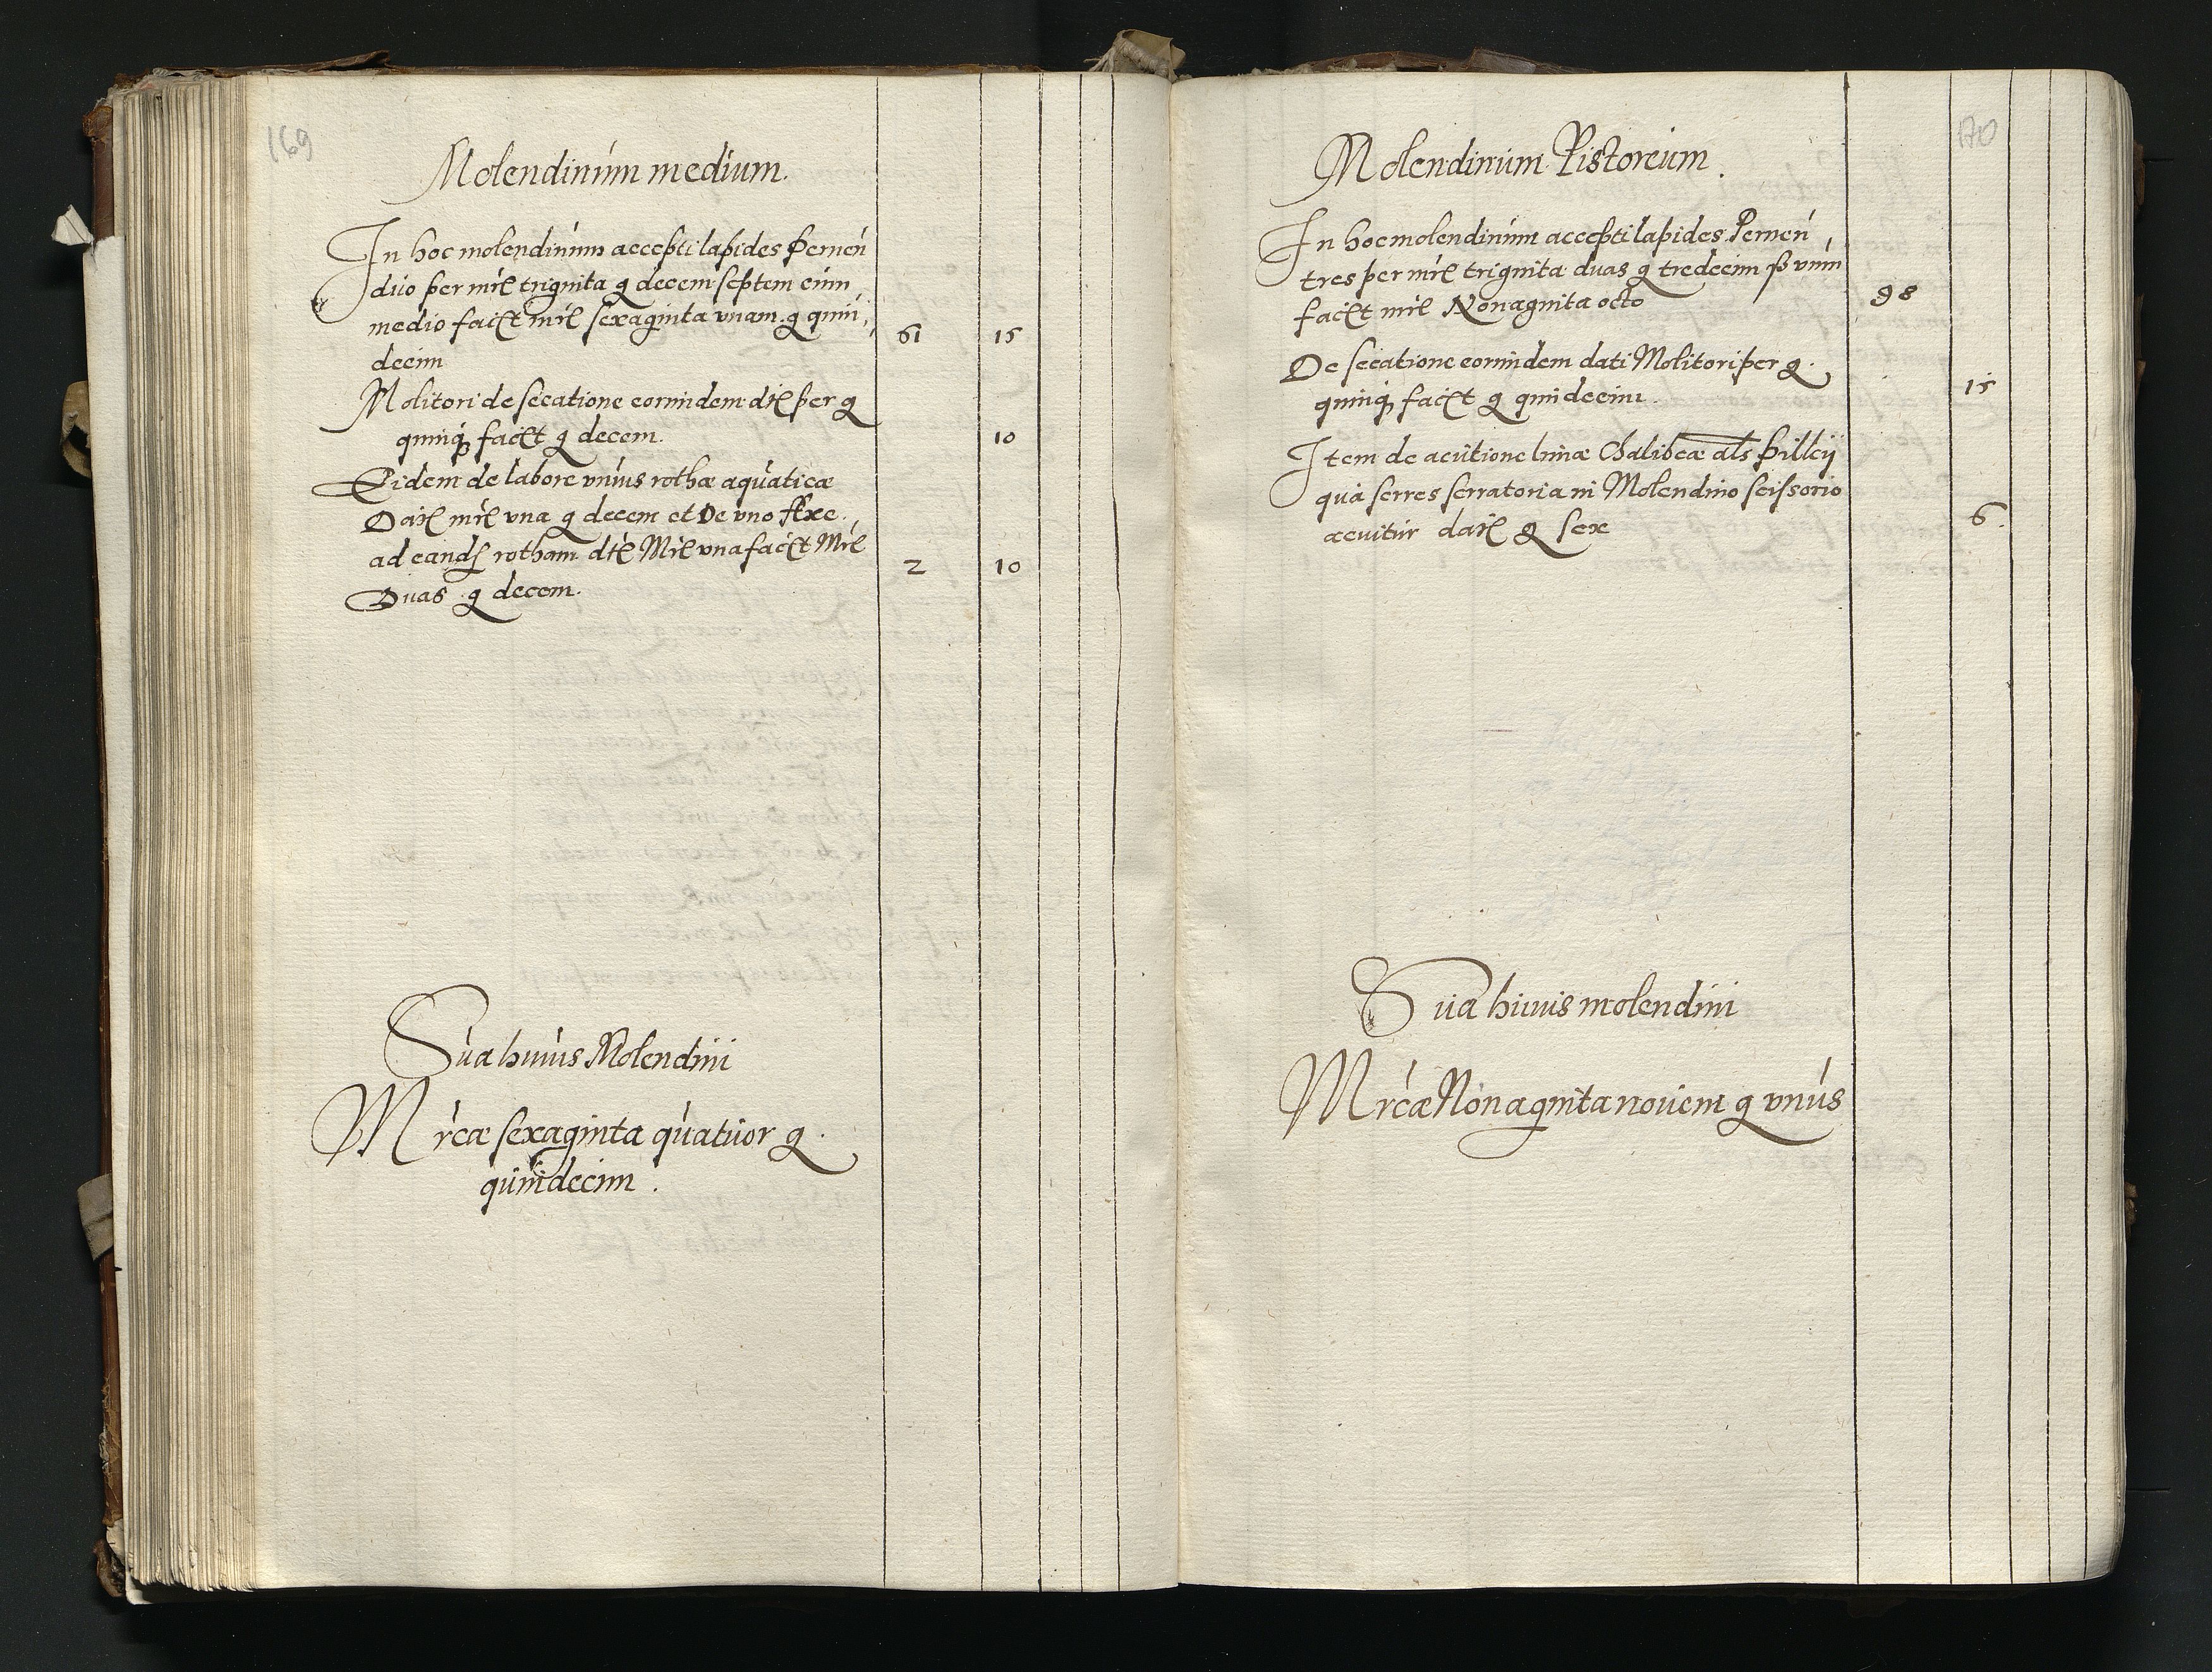 169
Molendinum medium.
In hoc molendinum accepti lapides Pernen
duo per mrc triginta g decem septem cum
medio facit mrc sexaginta vnam g quin
decim
61 15
Molitori de secatione eorundem dat per g
quinq facit g decem.
10
Eidem de labore vnius rothæ aquaticæ
Dat mrc vna g decem et De vno
ad eand rotham dat Mrc vna facit Mrc
Duas g decem.
2 10
Sua huius Molendini
Mrcæ sexaginta quatuor g
quindecim.
170
Molendinum Pistorium.
In hoc molendinum accepti lapides Pernen
tres per mrc triginta duas g tredecim p vnum
facit mrc Nonaginta octo
98
De secatione eorundem dati Molitori per g
quinq facit g quindecim.
15
Item de acutione limæ Chalibeæ als Pilky
qua serres serratoria in Molendino scissorio
acuitur dat g sex
6.
Sua huius molendini
Mrcæ Nonaginta nouem g vnus